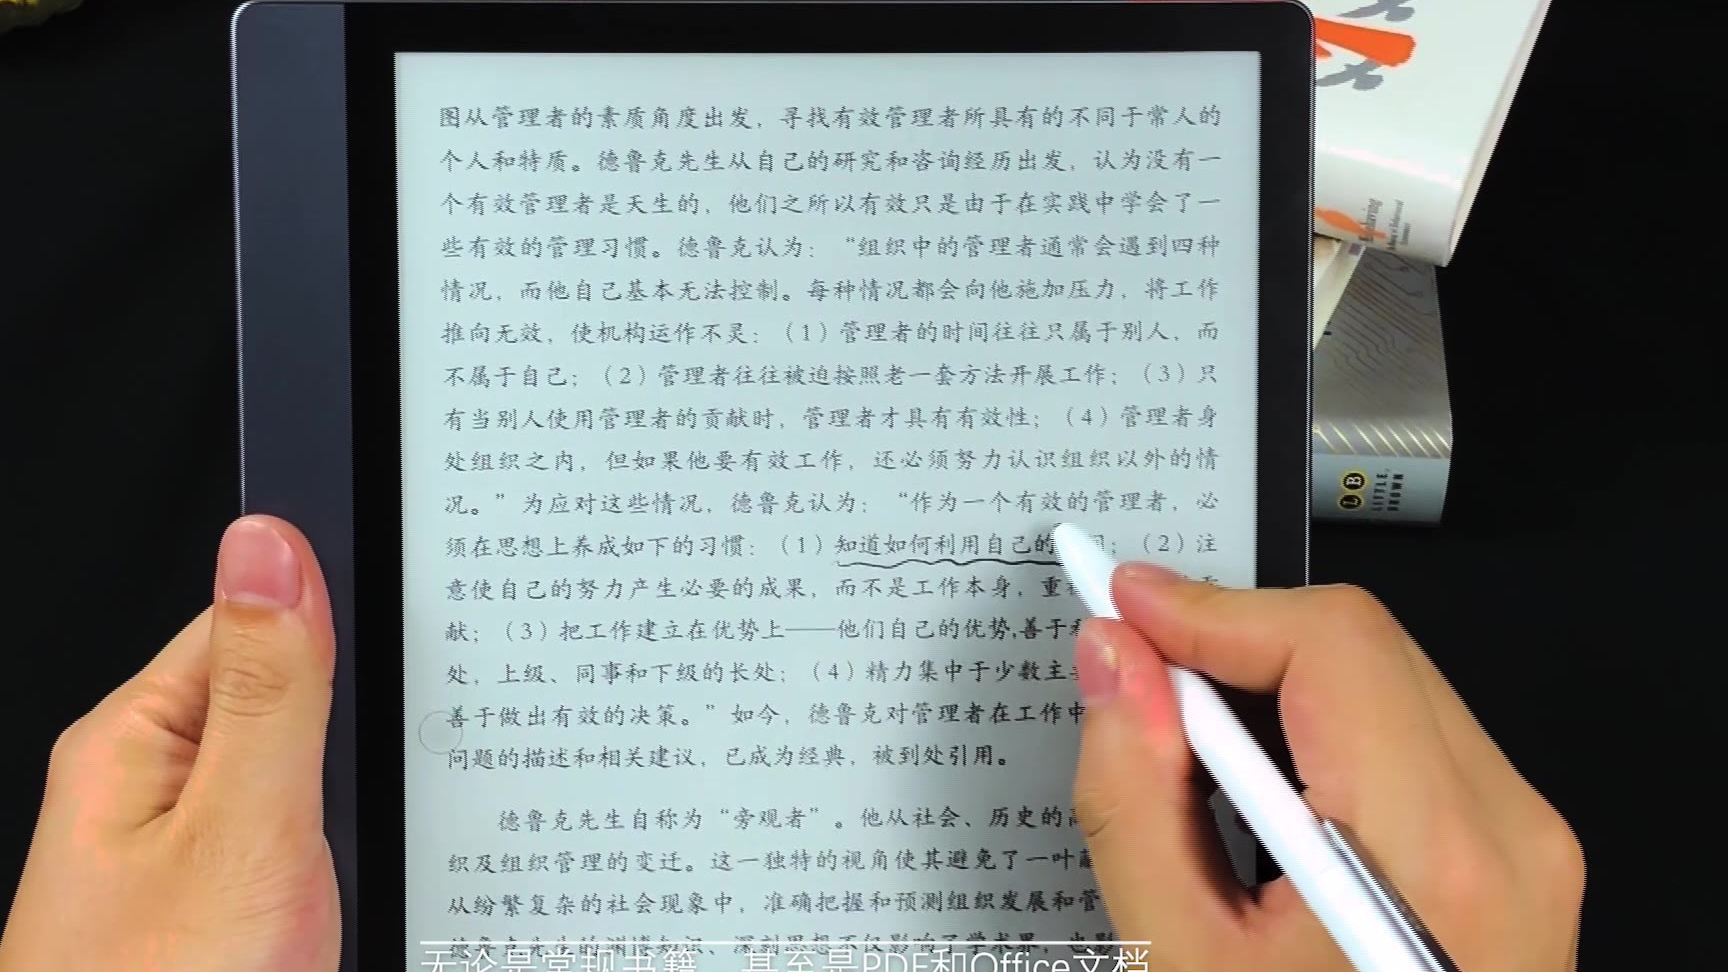 图从管理者的素质角度出发，寻找有效管理者所具有的不同于常人的
个人和特质。德鲁克先生从自己的研究和咨询经历出发，认为没有一
个有效管理者是天生的，他们之所以有效只是由于在实践中学会了一
些有效的管理习惯。德鲁克认为：“组织中的管理者通常会遇到四种
情况，而他自己基本无法控制。每种情况都会向他施加压力，将工作
推向无效，使机构运作不灵：（1）管理者的时间往往只属于别人，而
不属于自己；（2）管理者往往被迫按照老一套方法开展工作；（3）只
有当别人使用管理者的贡献时，管理者才具有有效性；（4）管理者身
处组织之内，但如果他要有效工作，还必须努力认识组织以外的情
况。”为应对这些情况，德鲁克认为：“作为一个有效的管理者，必
须在思想上养成如下的习惯：（1）知道如何利用自己的 间；（2）注
意使自己的努力产生必要的成果，而不是工作本身，重
献；（3）把工作建立在优势上——他们自己的优势，善于
处，上级、同事和下级的长处；（4）精力集中于少数主
善于做出有效的决策。”如今，德鲁克对管理者在工作中
问题的描述和相关建议，已成为经典，被到处引用。
德鲁克先生自称为“旁观者”。他从社会、历史的
织及组织管理的变迁。这一独特的视角使其避免了一叶
从纷繁复杂的社会现象中，准确把握和预测组织发展和管
德鲁克先生的渊博知识、深刻思想不仅影响了学术界，也影
无论是常规书籍 甚至是PDF和Office文档
Exploring
LB
LITTLE,
BROWN